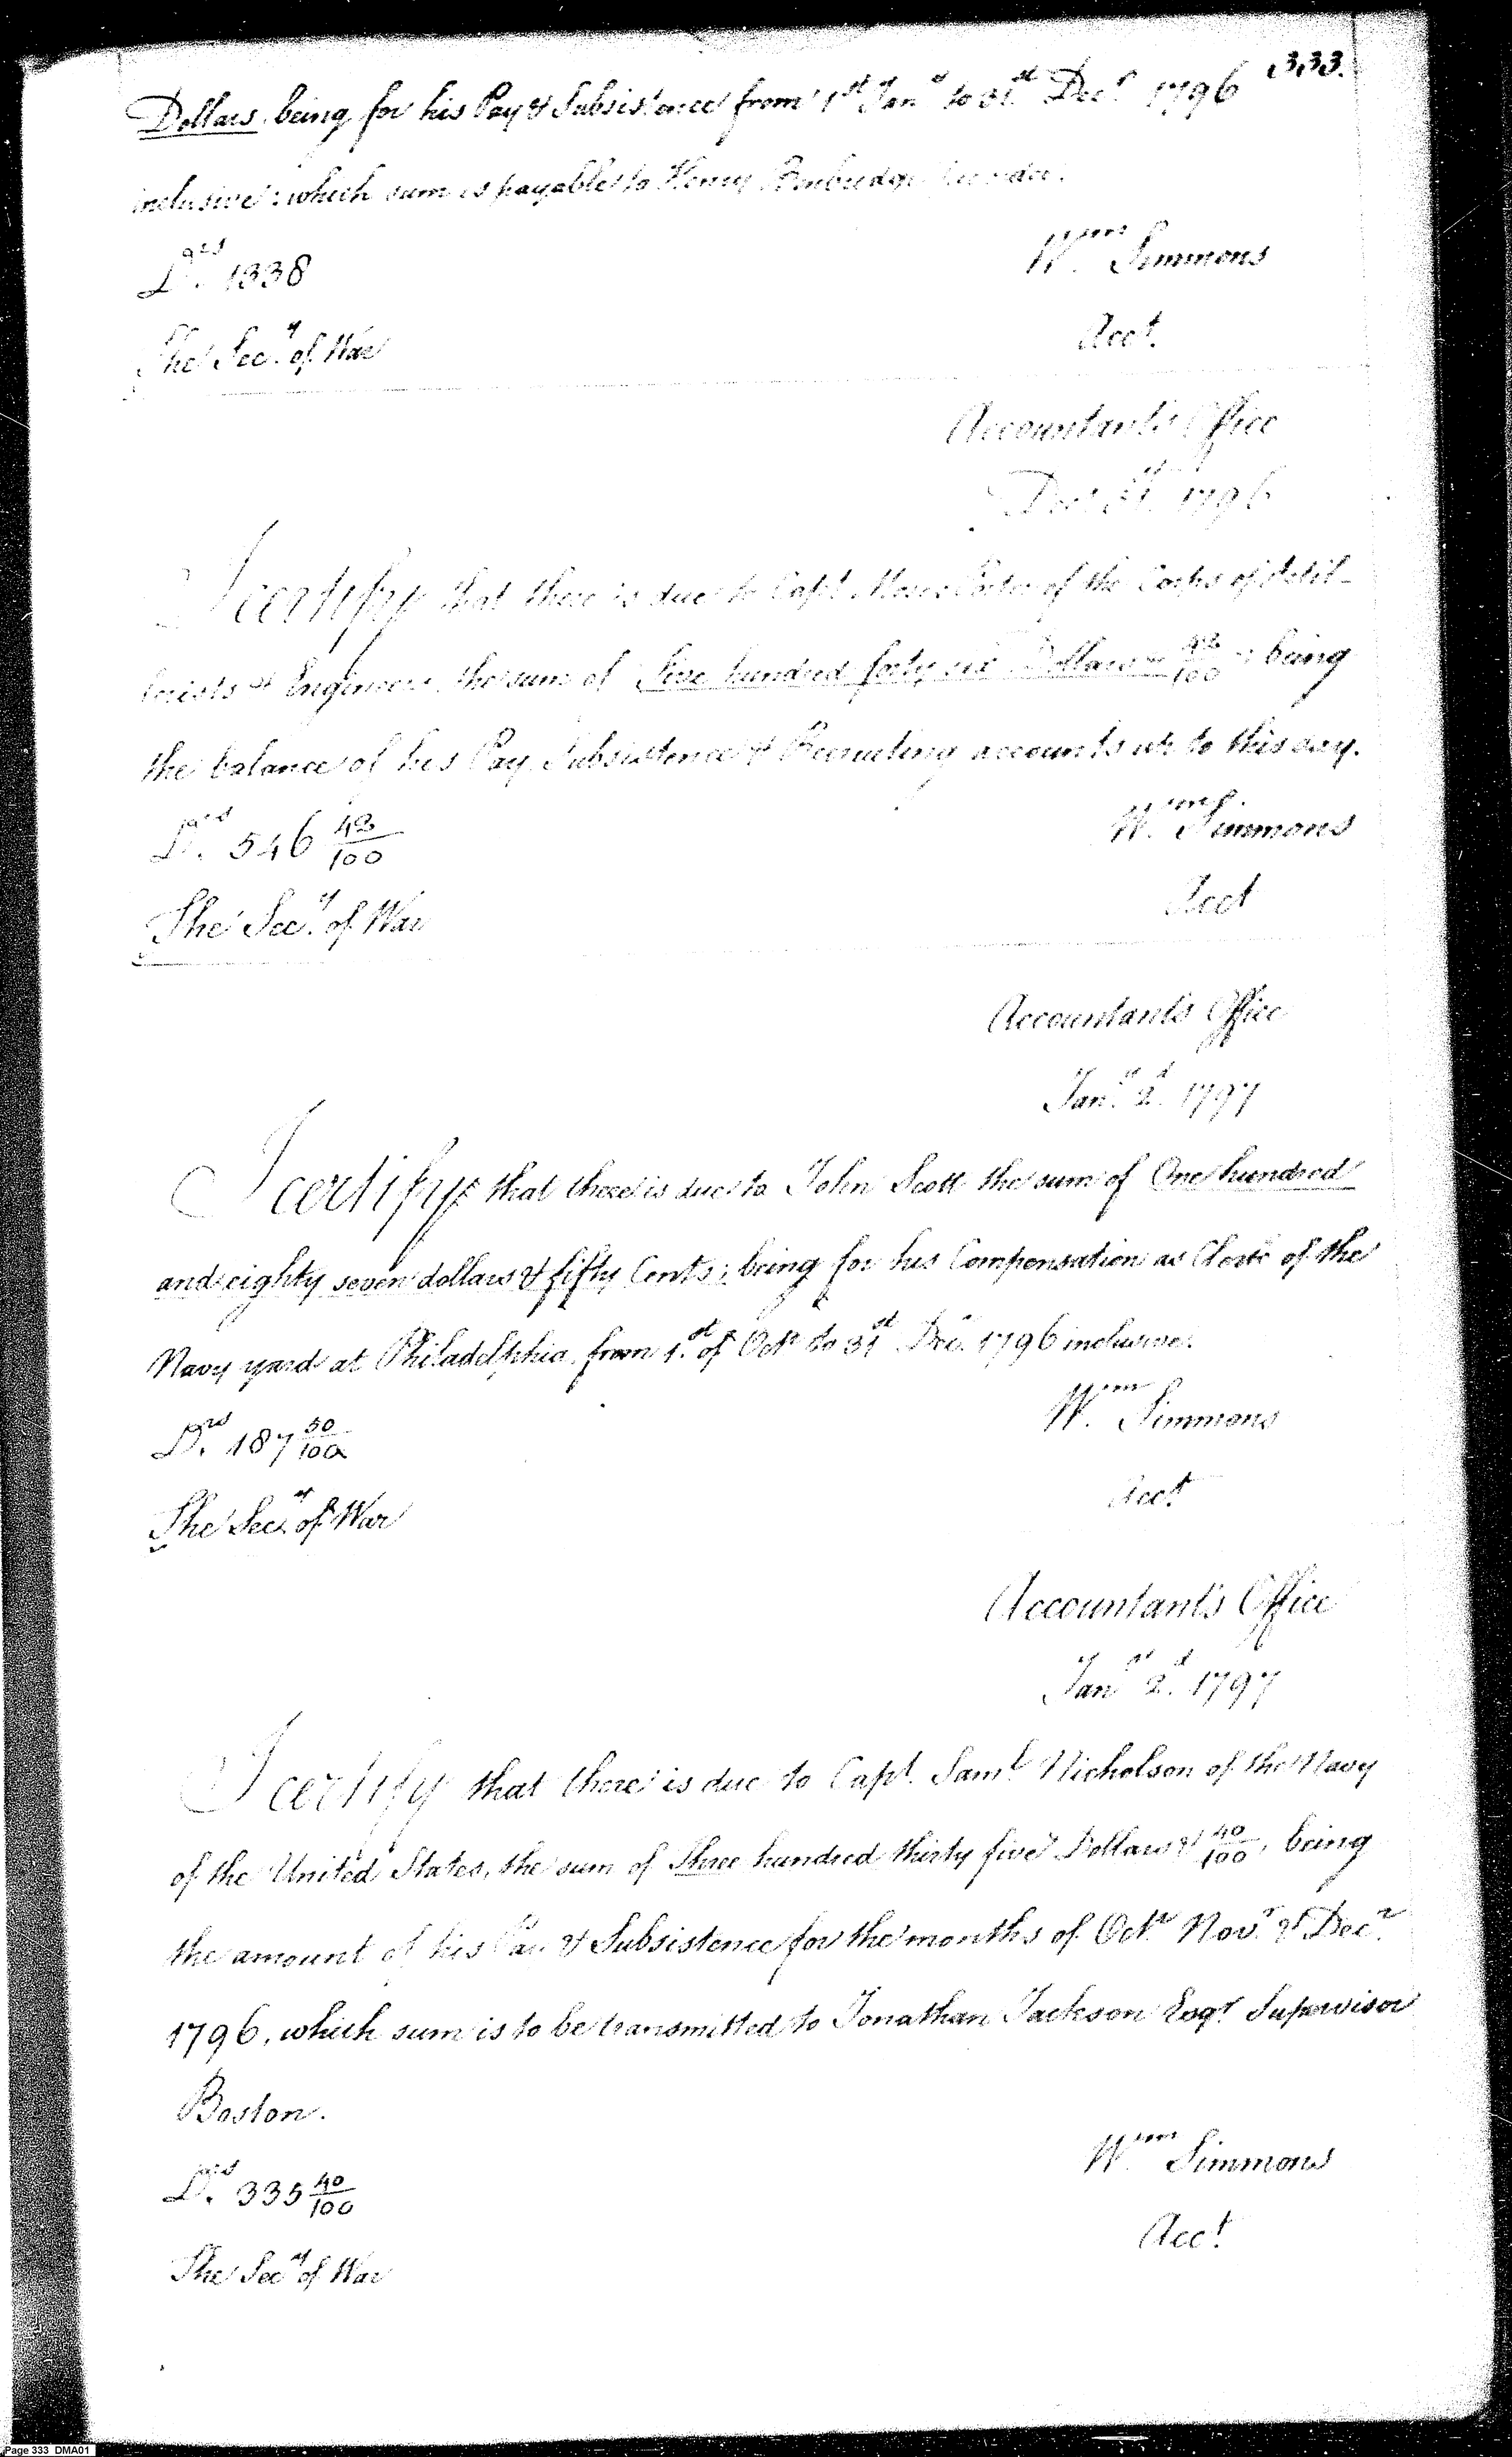 333.
Dollars being for his Pay & Subsistence from 1st Jany to 31st Decr 1796
inclusive: which sum is payable to Henry
Drs. 1338
Wm Simmons
The Secy of War
Acct.
Accountant's Office
Decr 31st 1796
I certify that there is due to Capt. Moses Porter of the Corps of Artil-
lerists & Engineers, the sum of Five hundred forty six Dollars 42/100; being
the balance of his Pay, Subsistence & Recruiting accounts up to this day.
Drs. 546 42/100
Wm Simmons
The Secy of War
Acct
Accountant's Office
Jany 2d 1797
I certify that there is due to John Scott the sum of One hundred
and eighty seven dollars & fifty Cents; being for his Compensation as Clerk of the
Navy yard at Philadelphia, from 1st of Octr to 31st Decr 1796 inclusive.
Drs. 187 50/100
Wm Simmons
The Secy of War
Acct
Accountant's Office
Jany 2d 1797
I certify that there is due to Capt. Saml Nicholson of the Navy
of the United States, the sum of Three hundred thirty five Dollars & 40/100, being
the amount of his Pay & Subsistence for the months of Octr Novr & Decr
1796, which sum is to be transmitted to Jonathan Jackson Esqr Supervisor
Boston.
Drs. 335 40/100
Wm Simmons
The Secy of War
Acct
Page 333 DMA01